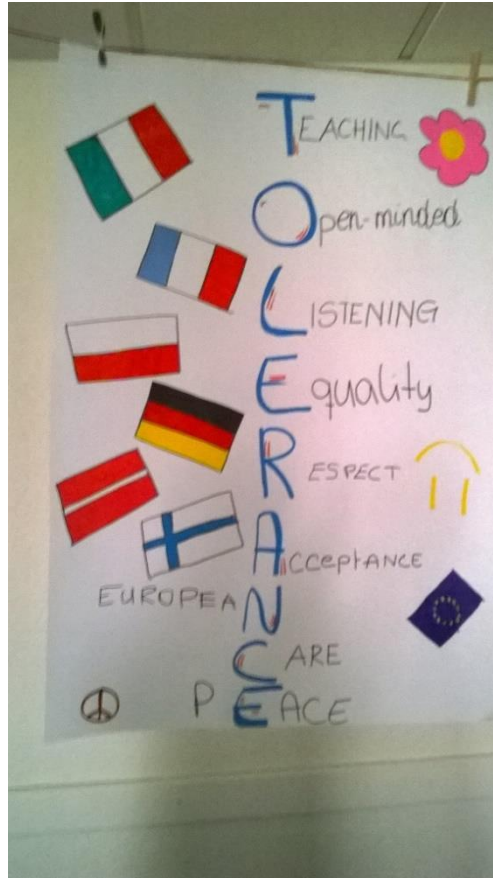 TEACHING
Open-minded
LISTENING
Equality
RESPECT
AccePtANCE
EUROPEAN
CARE
PEACE